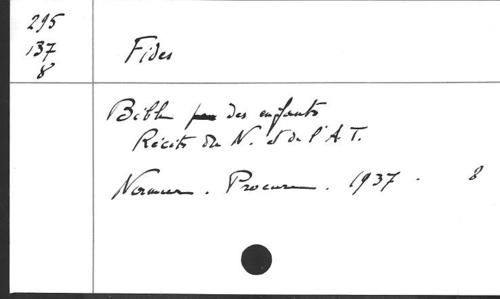 295
137
8
Fides
Bible des enfants
Récits du N. et de l'A.T.
Namur. Procure. 1937. 8